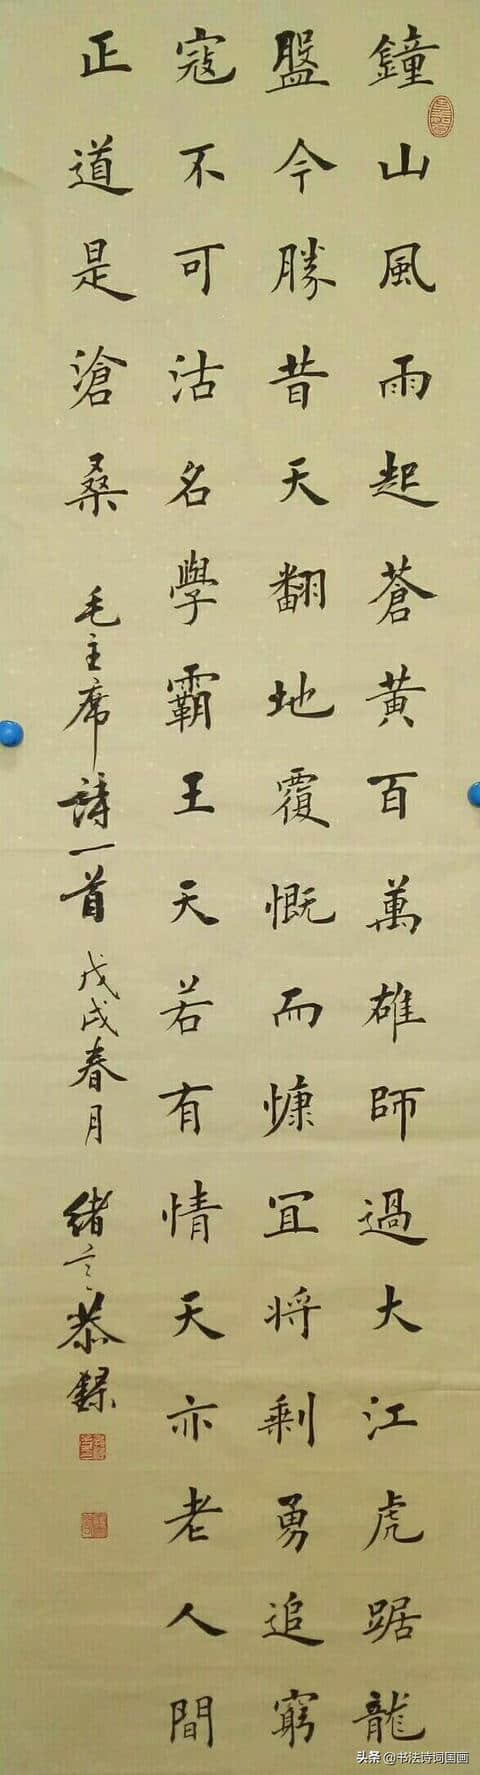 鐘山風雨起蒼黃百萬雄師過大江虎踞龍
盤今勝昔天翻地覆慨而慷宜將剩勇追窮
寇不可沽名學霸王天若有情天亦老人間
正道是滄桑
毛主席詩一首 戊戌春月 緒言恭錄
头条 @书法诗词国画